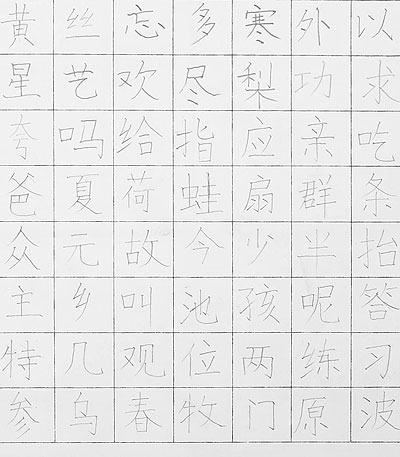 黄丝忘多寒外以
星艺欢尽梨功求
夸吗给指应亲吃
爸夏荷蛙扇群条
众元故今少半抬
主乡叫池孩呢答
特几观位两练习
参鸟春牧门原波